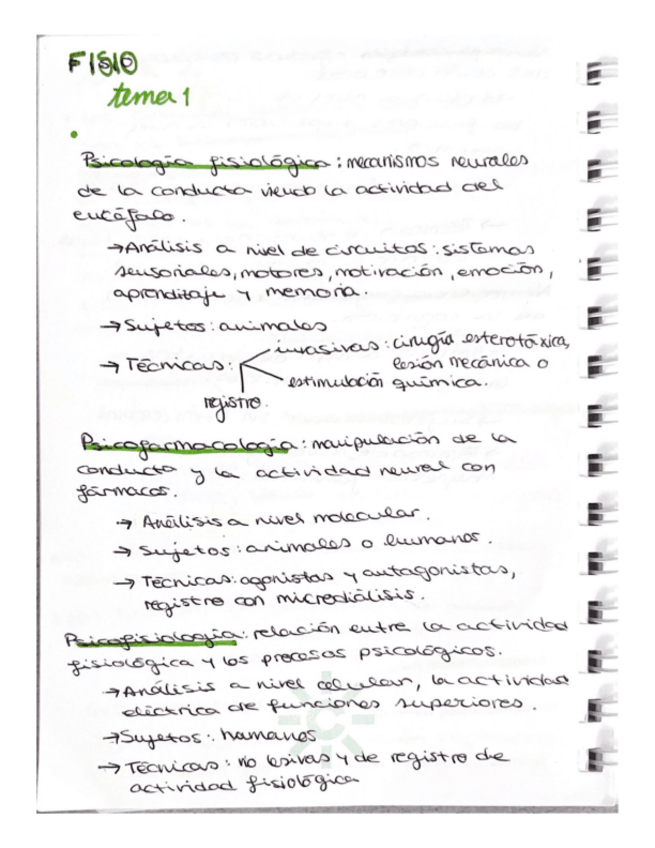 FISIO
tema 1
Psicología fisiológica: mecanismos neurales
de la conducta viendo la actividad del
encéfalo.
→ Análisis a nivel de circuitos: sistemas
sensoriales, motores, motivación, emoción,
aprenditaje y memoria.
→ Sujetos: animales
→ Técnicas: invasivas: cirugía esterotáxica,
lesión mecánica o
estimulación química.
registro.
Psicofarmacología: manipulación de la
conducta y la actividad neural con
fármacos.
→ Análisis a nivel molecular.
→ Sujetos: animales o humanos.
→ Técnicas: agonistas y antagonistas,
registro con microdiálisis.
Psicofisiología: relación entre la actividad
fisiológica y los procesos psicológicos.
→ Análisis a nivel celular, la actividad
eléctrica de funciones superiores.
→ Sujetos: humanos
→ Técnicas: no lesivas y de registro de
actividad fisiológica